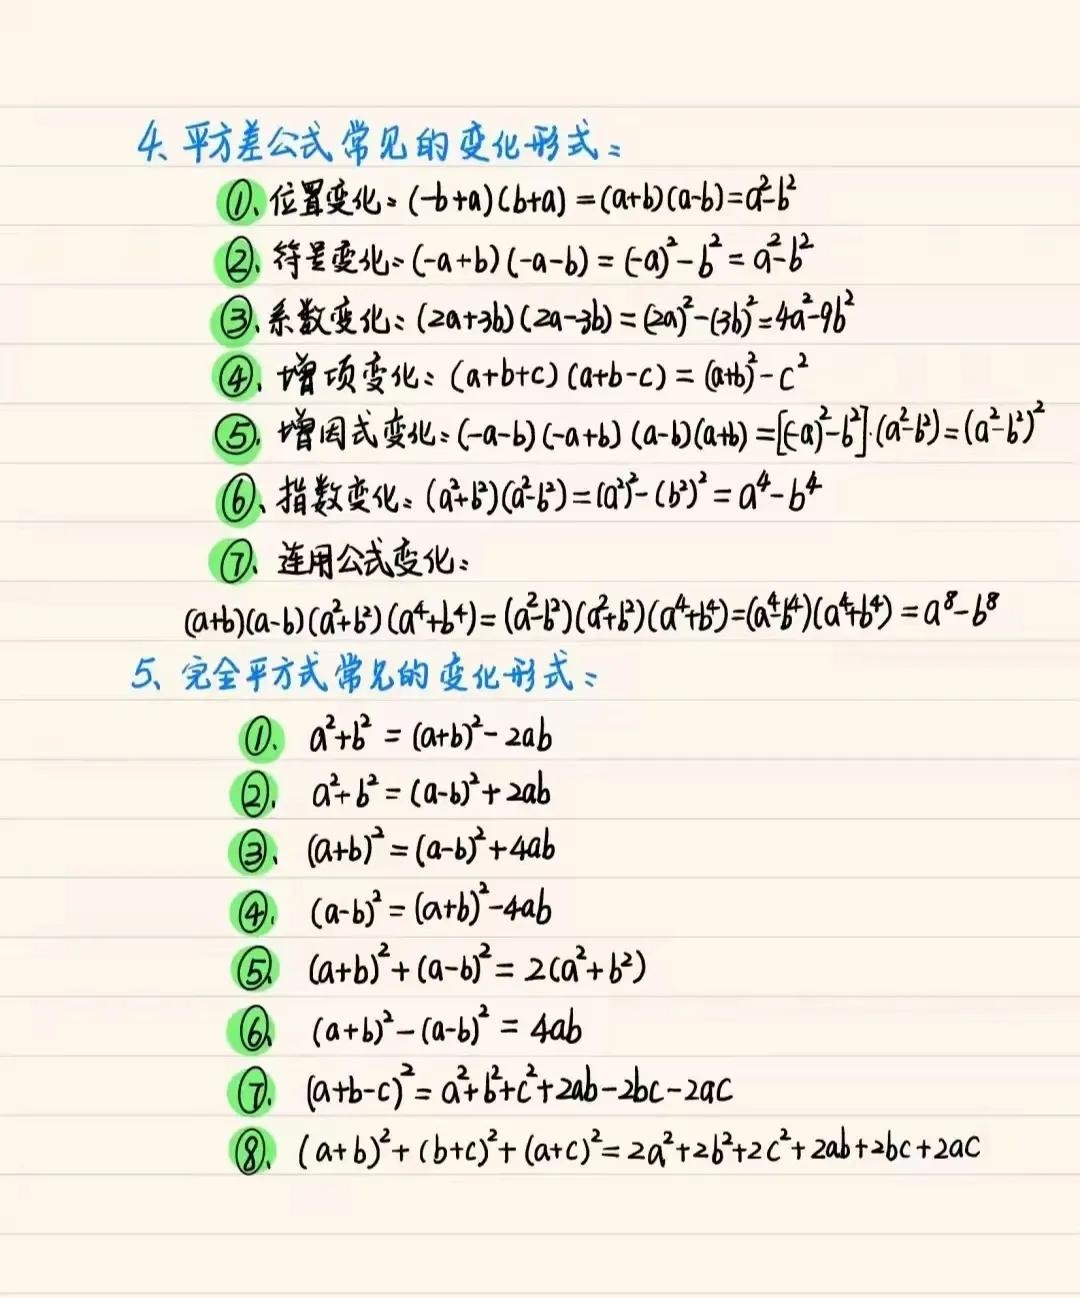 4、平方差公式常见的变化形式：
①、位置变化：(-b+a)(b+a)=(a+b)(a-b)=a²-b²
②、符号变化：(-a+b)(-a-b)=(-a)²-b²=a²-b²
③、系数变化：(2a+3b)(2a-3b)=(2a)²-(3b)²=4a²-9b²
④、增项变化：(a+b+c)(a+b-c)=(a+b)²-c²
⑤、增因式变化：(-a-b)(-a+b)(a-b)(a+b)=[(-a)²-b²]·(a²-b²)=(a²-b²)²
⑥、指数变化：(a²+b²)(a²-b²)=(a²)²-(b²)²=a⁴-b⁴
⑦、连用公式变化：
(a+b)(a-b)(a²+b²)(a⁴+b⁴)=(a²-b²)(a²+b²)(a⁴+b⁴)=(a⁴-b⁴)(a⁴+b⁴)=a⁸-b⁸
5、完全平方式常见的变化形式：
①、a²+b²=(a+b)²-2ab
②、a²+b²=(a-b)²+2ab
③、(a+b)²=(a-b)²+4ab
④、(a-b)²=(a+b)²-4ab
⑤、(a+b)²+(a-b)²=2(a²+b²)
⑥、(a+b)²-(a-b)²=4ab
⑦、(a+b-c)²=a²+b²+c²+2ab-2bc-2ac
⑧、(a+b)²+(b+c)²+(a+c)²=2a²+2b²+2c²+2ab+2bc+2ac